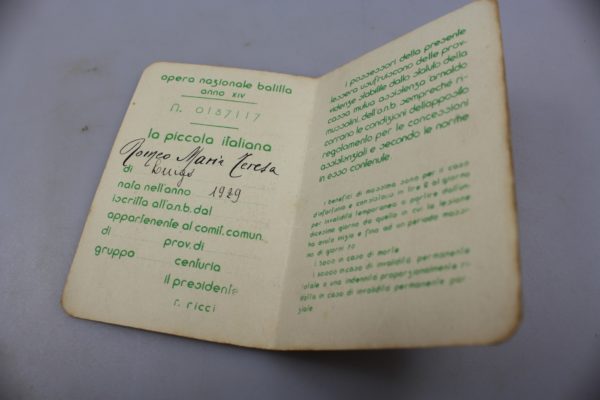 opera nazionale balilla
anno XIV
n. 0187117
la piccola italiana
Romeo Maria Teresa
di Luigi
nata nell'anno 1929
iscritta all'o.n.b. dal
appartenente al comit. comun.
di prov. di
gruppo centuria
il presidente
r. ricci
i possessori della presente
tessera usufruiscono delle prov-
videnze stabilite dallo statuto della
cassa mutua assistenza arnaldo
mussolini, dell'o.n.b. sempreché ri-
corrano le condizioni dell'apposito
regolamento per le concessioni
assistenziali e secondo le norme
in esso contenute
i benefici di massima sono per il caso
d'infortunio e consistono in lire 2 al giorno
per invalidità temporanea a partire dall'un-
dicesimo giorno da quello in cui la lesione
ha avuto inizio e fino ad un periodo massi-
mo di giorni 70
in caso di morte
in caso di invalidità permanente
totale o una indennità proporzionalmente ri-
dotta in caso di invalidità permanente par-
ziale